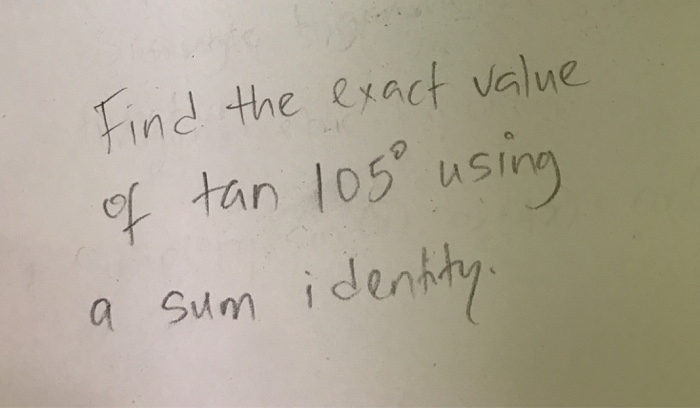 Find the exact value
of tan 105° using
a sum identity.